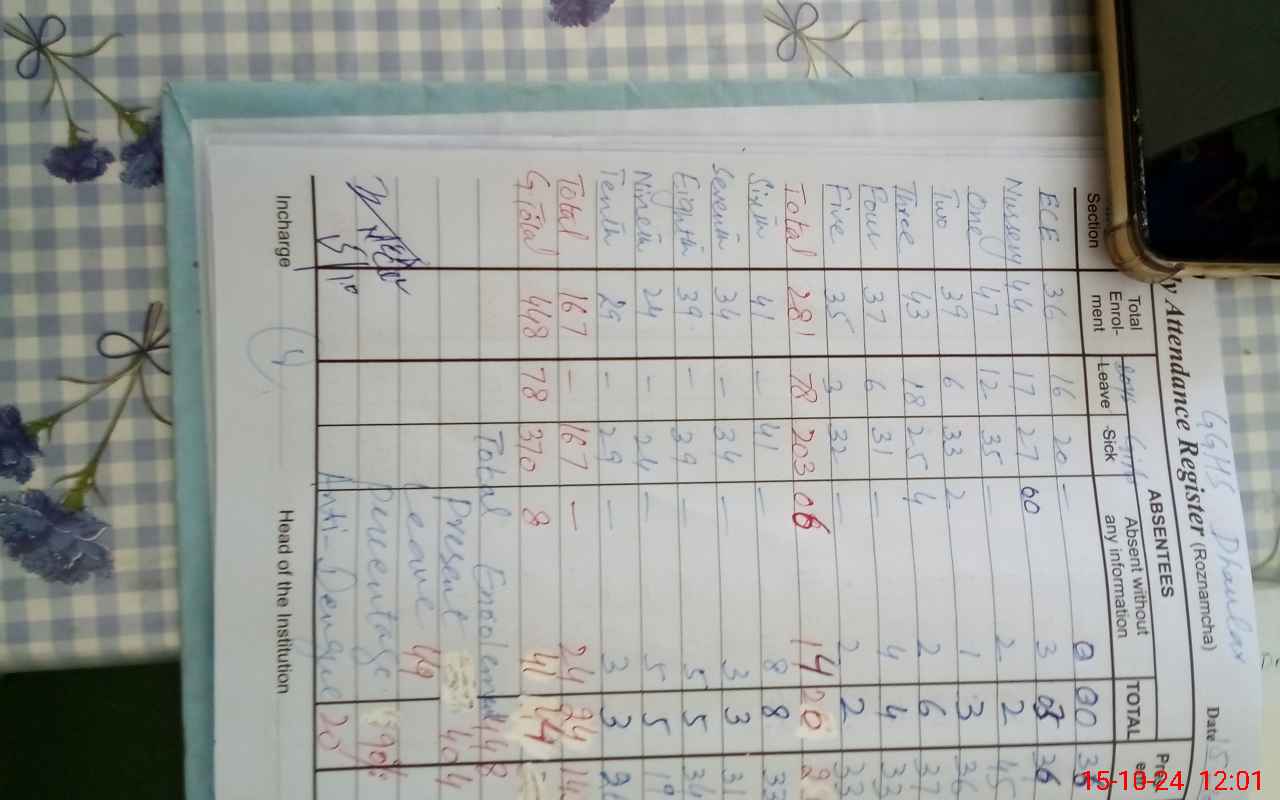 GGHS Dhaular
Daily Attendance Register (Roznamcha) Date 15
Section Total Enrol-ment ABSENTEES TOTAL
Boys Girls
Leave Sick Absent without any information
ECE 36 16 20 - 0 00 36
Nussery 44 17 27 00 3 03
One 47 12 35 - 2 2 45
Two 39 6 33 2 1 3 36
Three 43 18 25 4 2 6 37
Four 37 6 31 - 4 4 33
Five 35 3 32 - 2 2 33
Total 281 78 203 06 14 20
Sixth 41 - 41 - 8 8 33
Seventh 34 - 34 - 3 3 31
Eighth 39 - 39 - 5 5 34
Nineth 24 - 24 - 5 5 19
Tenth 29 - 29 - 3 3
Total 167 - 167 - 24 24
G Total 448 78 370 8 41
Total Enrolement 448
Present 404
Leave 49
Percentage 90%
Anti-Dengue 20
Incharge Head of the Institution
(4)
15-10-24 12:01